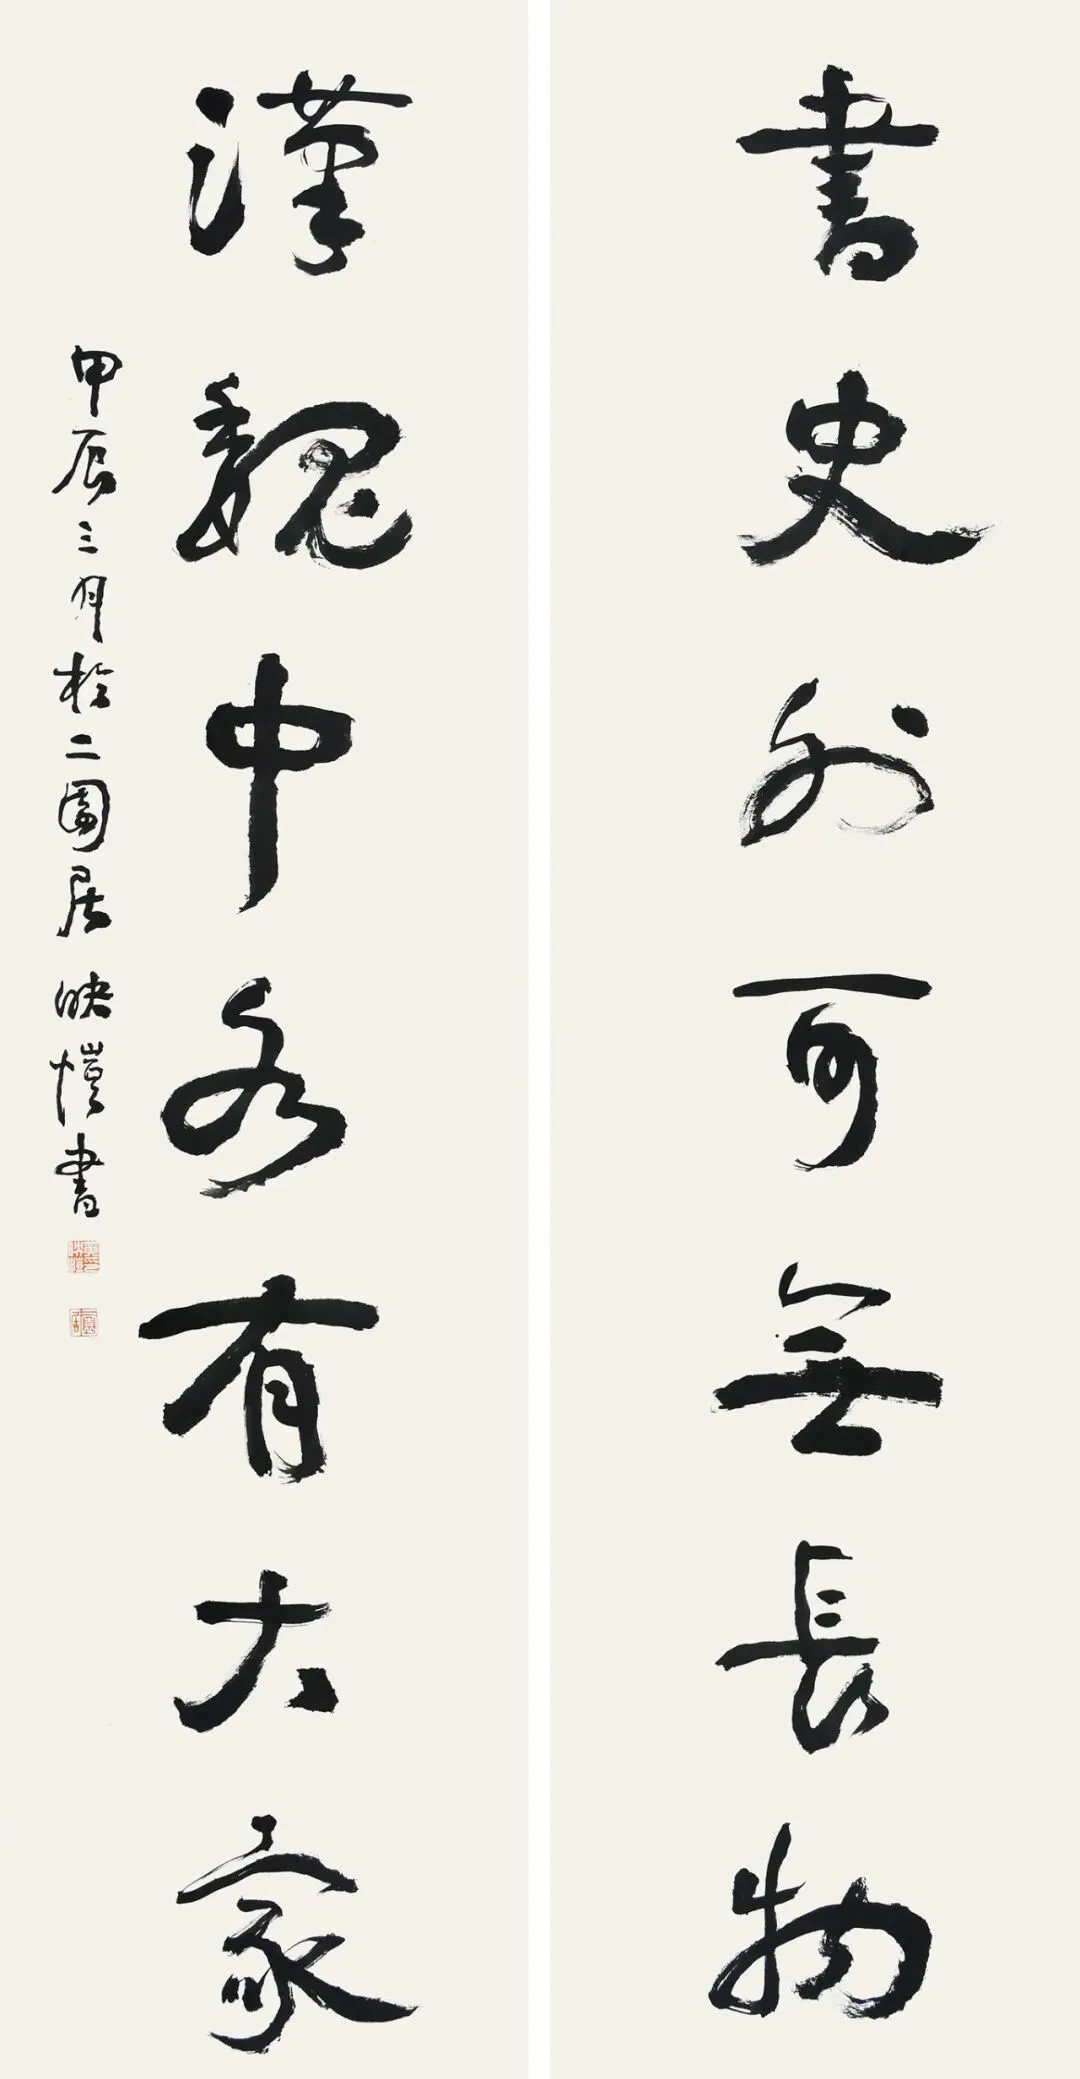 書史外可無長物
漢魏中多有大家
甲辰三月於二園居 映愷書